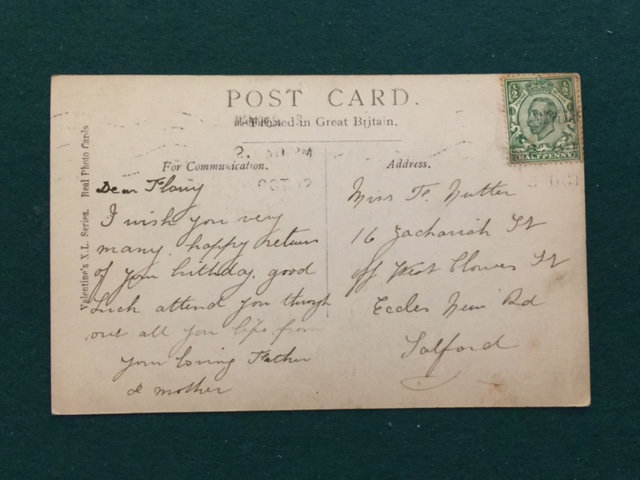 POST CARD.
Printed in Great Britain.
2. 30 PM
OCT 12
For Communication.
Address.
Valentine's X.L. Series. Real Photo Cards
HALFPENNY
Dear Flory
I wish you very
many happy return
of your birthday, good
Luck attend you through
out all your life from
your loving Father
& mother
Miss F. Nutter
16 Zachariah St
off West Clowes St
Eccles New Rd
Salford